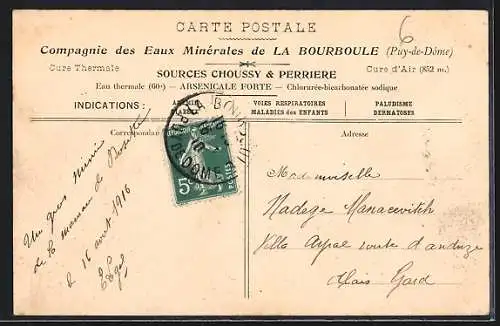 CARTE POSTALE
6
Compagnie des Eaux Minérales de LA BOURBOULE (Puy-de-Dôme)
Cure Thermale
Cure d'Air (852 m.)
SOURCES CHOUSSY & PERRIERE
Eau thermale (60°) — ARSENICALE FORTE — Chlorurée-bicarbonatée sodique
INDICATIONS :
VOIES RESPIRATOIRES
MALADIES des ENFANTS
PALUDISME
DERMATOSES
Correspondance
Adresse
5c
POSTES
Un gros
de la maman de
le 16 août 1916
Mademoiselle
Nadege Manacevitch
Villa Aypal route d'anduze
Alais Gard